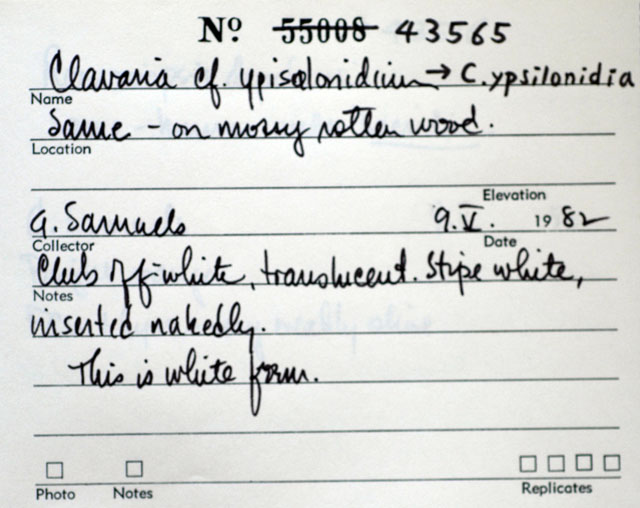 Nº 55008 43565
Clavaria cf. ypisolonidium → C. ypsilonidia
Name
Same - on mossy rotten wood.
Location
Elevation
G. Samuels 9.V. 1982
Collector Date
Club off-white, translucent. Stipe white,
Notes
inserted nakedly.
This is white form.
Photo Notes Replicates